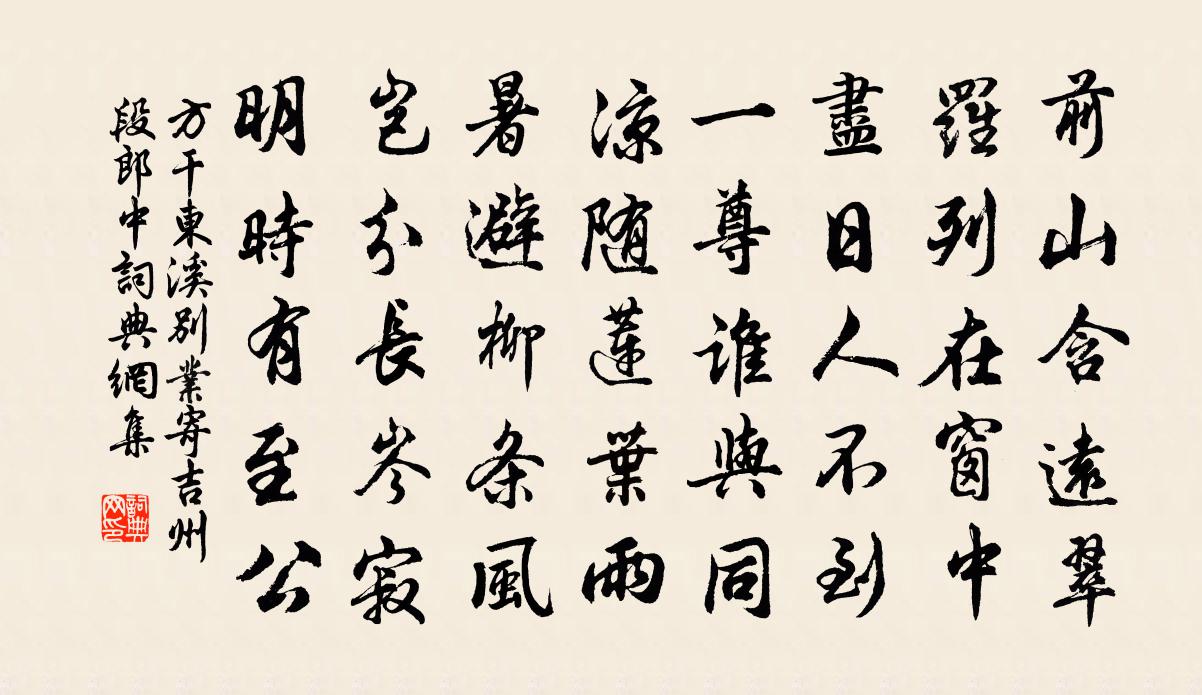 前山含遠翠
羅列在窗中
盡日人不到
一尊誰與同
涼随蓮葉雨
暑避柳条風
豈分長岑寂
明時有至公
方干東溪别業寄吉州
段郎中詞典網集
詞典網印